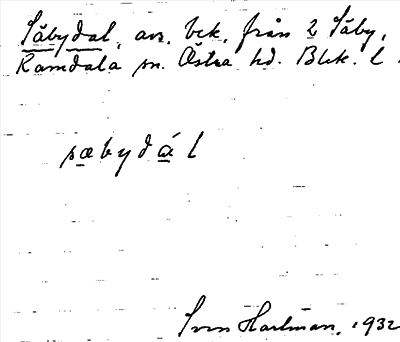 Säbydal, avs. bck. från 2 Säby,
Ramdala sn. Östra hd. Blek. l.
sæbydál
Sven Hartman, 1932